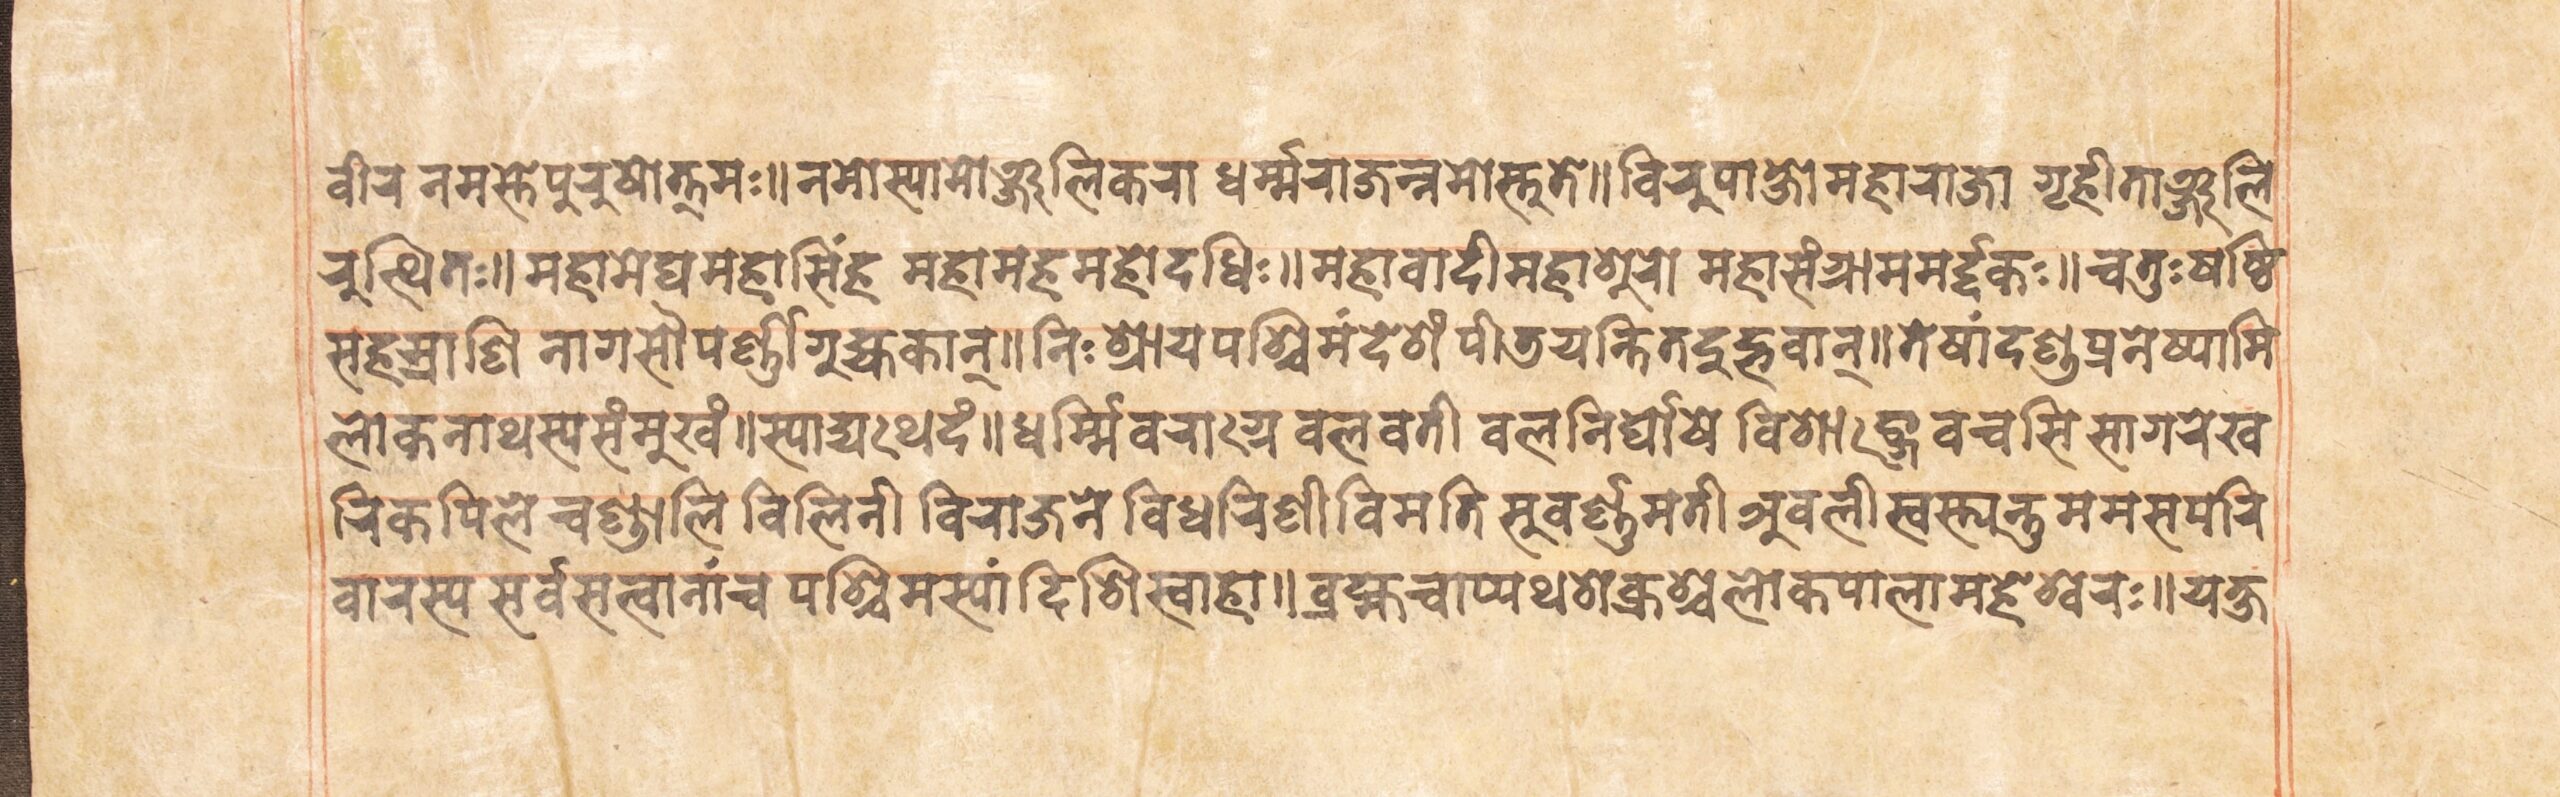 वीर नमस्तेपुरुषोत्तमः॥नमोस्यामोञ्जलिकरा धर्म्मराजन्नमोस्तुते॥विरुपाक्षोमहाराजा गृहीताञ्जलि
रुत्थितः॥महामेघमहासिंह महामहमहोदधिः॥महावादीमहाशुरो महासंग्राममर्द्दकः॥चतुःषष्ठि
सहस्राणि नागसौपर्ण्णीगुह्यकान्॥निःश्रायपश्चिमंदेशे पीतयन्तितदुद्भवान्॥तेषांदण्डप्रनेष्यामि
लोकनाथस्यसंमुखं॥स्याद्यथेदं॥धर्म्मिवराग्रे वलवती वलनिर्घोषे विशाङ्गे वचसि सागरेख
रिकपिले चण्डालि विलिनी विराजने विधरिणी विमति सुवर्ण्णमती अवली स्वस्त्युन्तु ममसपरि
वारस्य सर्वसत्वानांच पश्चिमस्यां दिशिस्वाहा॥ब्रह्मचाप्यथशेक्रश्चलोकपालामहेश्वेरः॥यक्ष